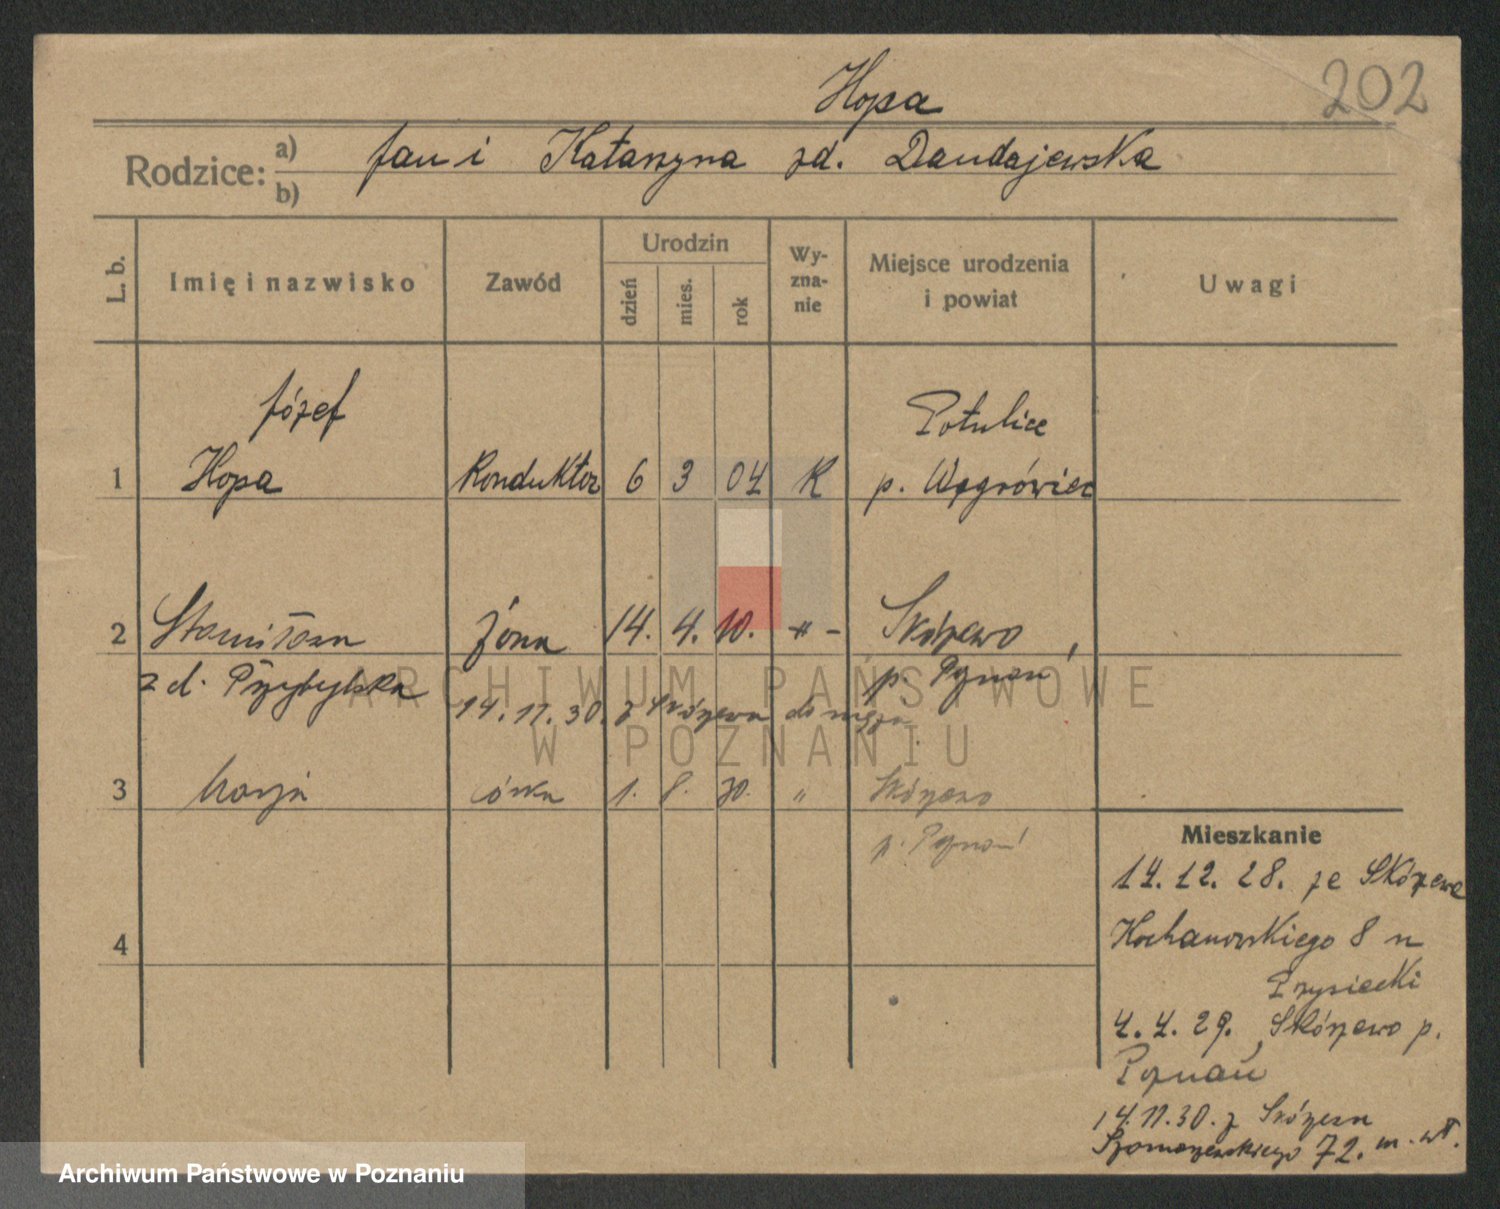 Hopa
202
Rodzice: a) b) Jan i Katarzyna zd. Dandajewska
L. b. Imię i nazwisko Zawód Urodzin dzień mies. rok Wy-zna-nie Miejsce urodzenia i powiat Uwagi
Józef Potulice
1 Hopa Konduktor 6 3 04 K p. Wągrówiec
2 Stanisława żona 14. 4. 10. -"- Skórzewo,
zd. Przybylska p. Poznań
14.11.30. z Skórzewa do męża
3 Marja córka 1. 8. 30. " Skórzewo
p. Poznań
Mieszkanie
14. 12. 28. ze Skórzewa
4 Kochanowskiego 8 u
Przysiecki
4. 4. 29. Skórzewo p.
Poznań
14.11.30. z Skórzewa
Szamarzewskiego 72. m. wł.
ARCHIWUM PAŃSTWOWE
W POZNANIU
Archiwum Państwowe w Poznaniu